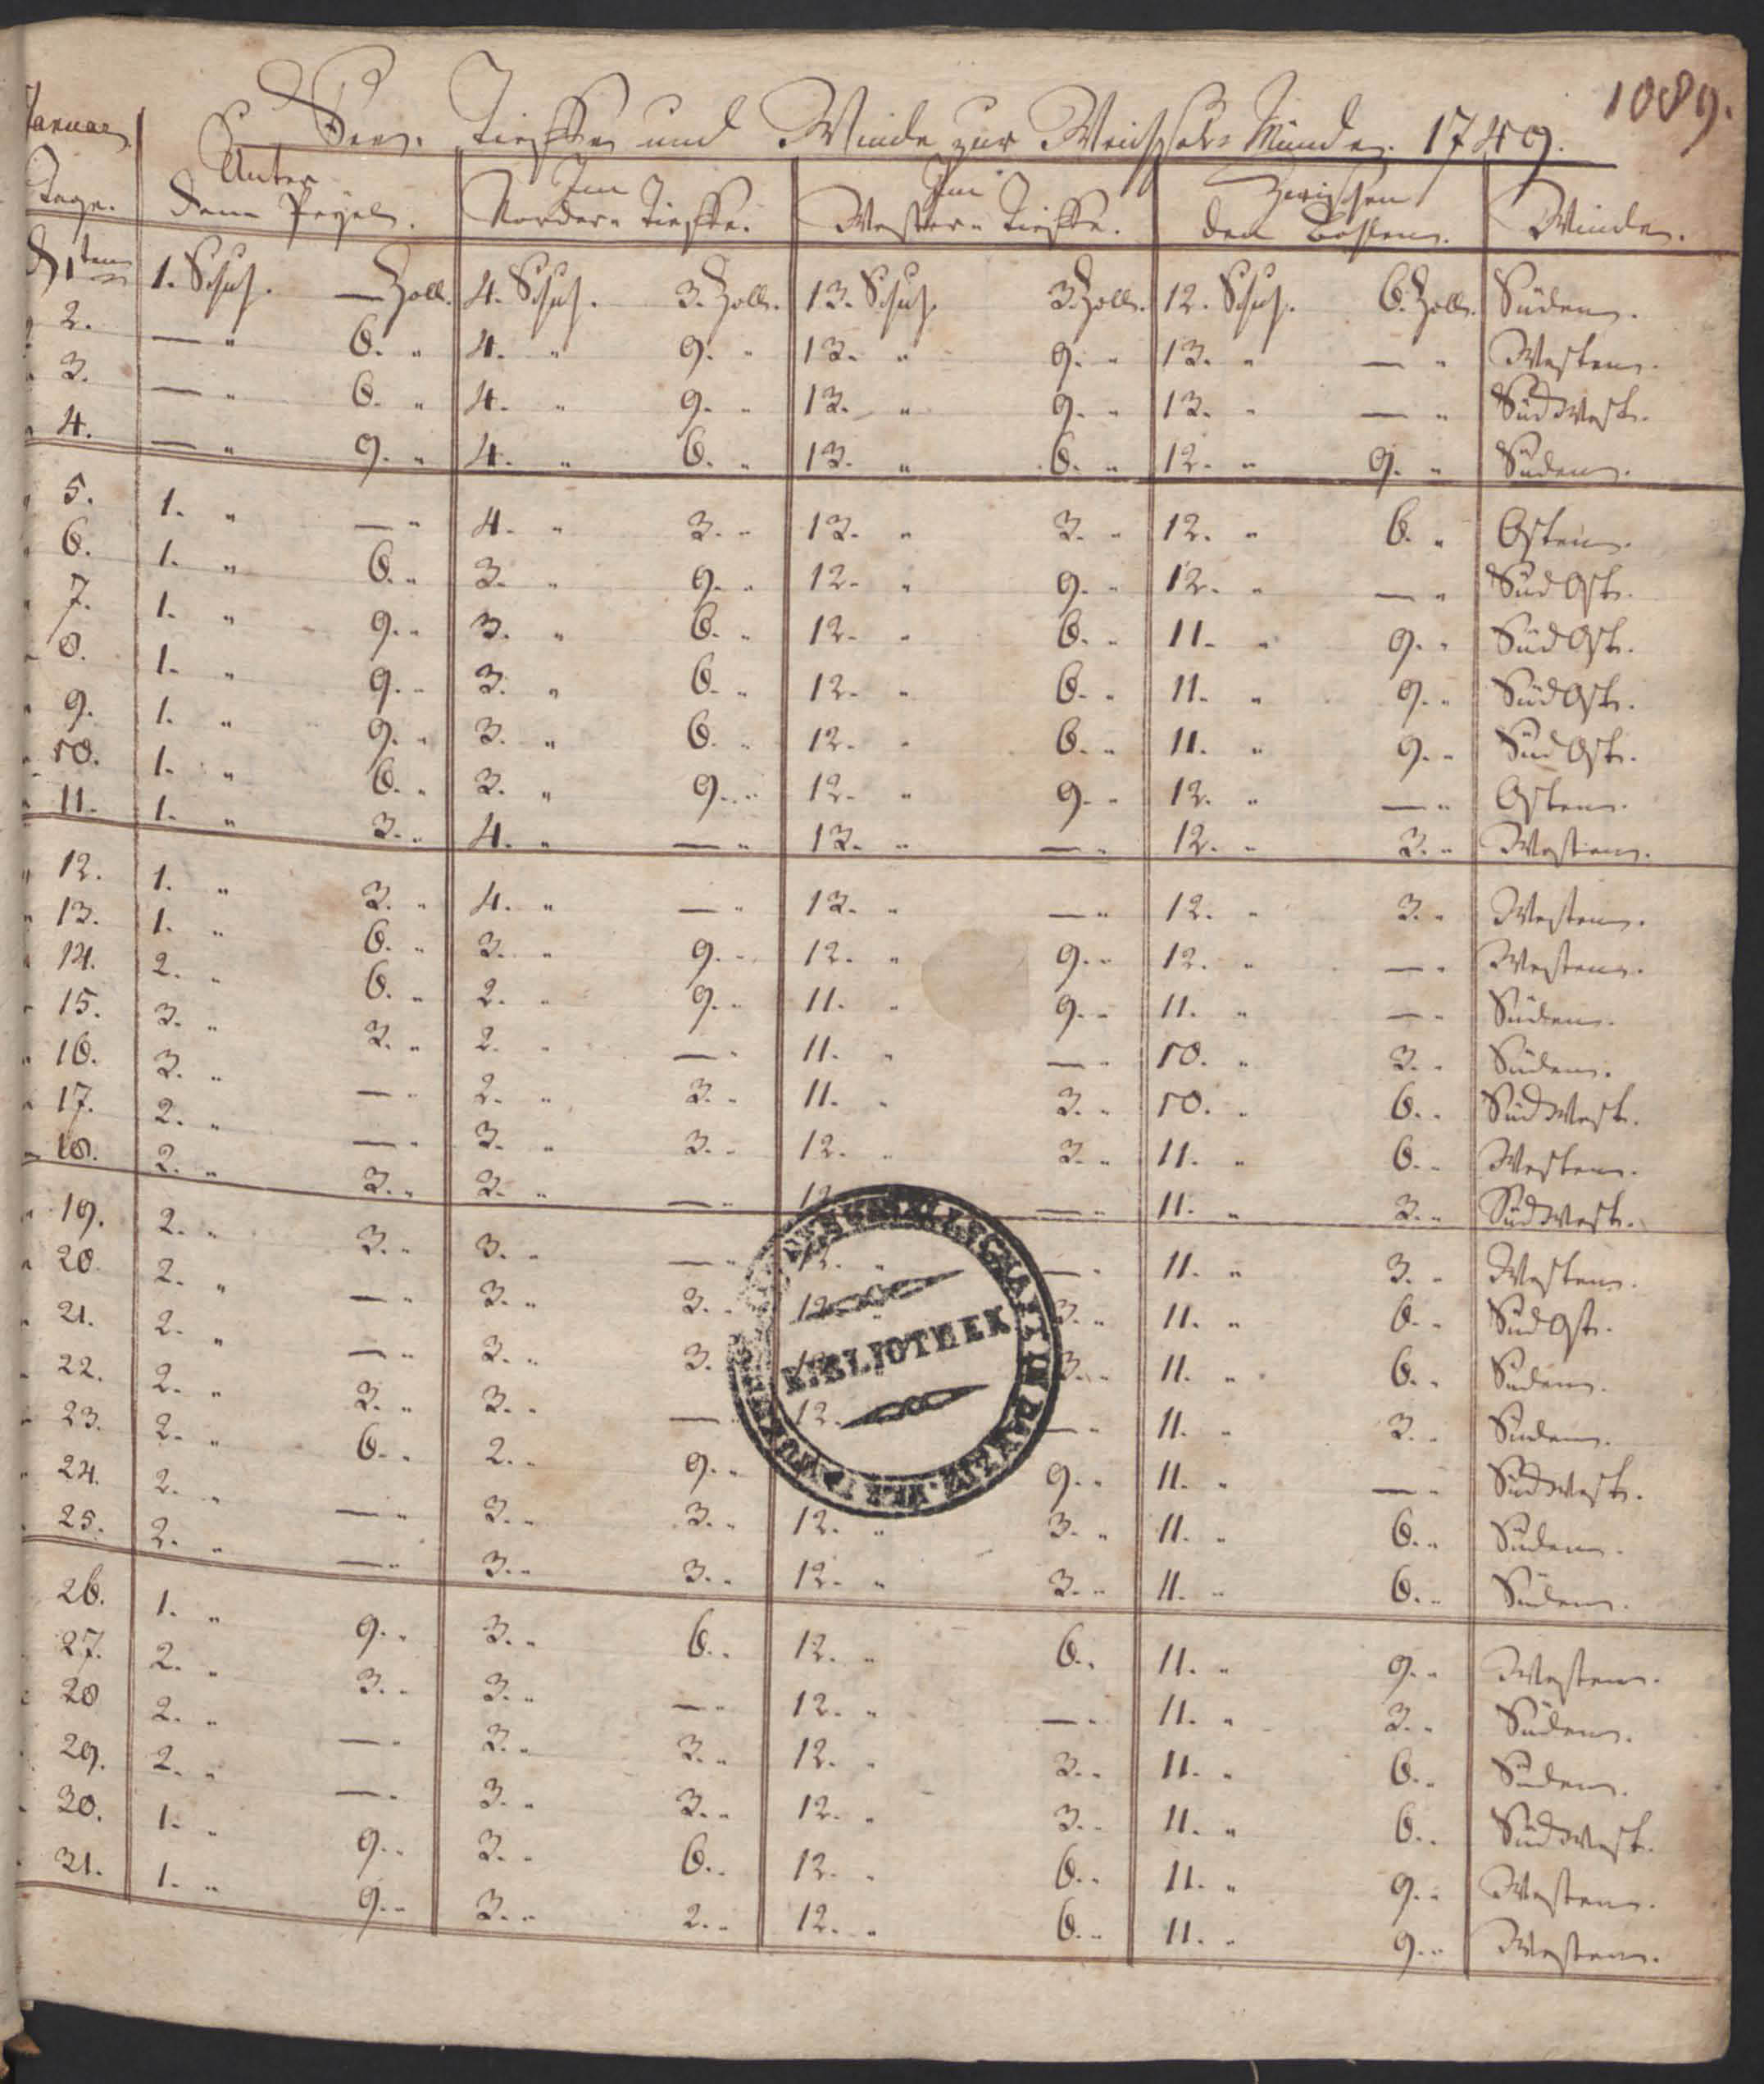 1089.
Januar, See- Tieffen und Winde zur Weichsel- Münde. 1749.
Tage. Unter dem Pegel. Im Norder- Tieffe. Im Wester- Tieffe. Zwischen den Winde.
d. 1ten 1. Schuh. — Zoll. 4. Schuh. 3. Zoll. 13. Schuh. 3. Zoll. 12. Schuh. 6. Zoll. Süden.
" 2. — " 6. " 4. " 9. " 13. " 9. " 13. " — " Westen.
" 3. — " 6. " 4. " 9. " 13. " 9. " 13. " — " SüdWest.
" 4. — " 9. " 4. " 6. " 13. " 6. " 12. " 9. " Süden.
" 5. 1. " — " 4. " 3. " 13. " 3. " 12. " 6. " Osten.
" 6. 1. " 6. " 3. " 9. " 12. " 9. " 12. " — " SüdOst.
" 7. 1. " 9. " 3. " 6. " 12. " 6. " 11. " 9. " SüdOst.
" 8. 1. " 9. " 3. " 6. " 12. " 6. " 11. " 9. " SüdOst.
" 9. 1. " 9. " 3. " 6. " 12. " 6. " 11. " 9. " SüdOst.
" 10. 1. " 6. " 3. " 9. " 12. " 9. " 12. " — " Osten.
" 11. 1. " 3. " 4. " — " 13. " — " 12. " 3. " Westen.
" 12. 1. " 3. " 4. " — " 13. " — " 12. " 3. " Westen.
" 13. 1. " 6. " 3. " 9. " 12. " 9. " 12. " — " Westen.
" 14. 2. " 6. " 2. " 9. " 11. " 9. " 11. " — " Süden.
" 15. 3. " 3. " 2. " — " 11. " — " 10. " 3. " Süden.
" 16. 3. " — " 2. " 3. " 11. " 3. " 10. " 6. " SüdWest.
" 17. 2. " — " 3. " 3. " 12. " 3. " 11. " 6. " Westen.
" 18. 2. " 3. " 3. " — " 12. — " 11. " 3. " SüdWest.
" 19. 2. " 3. " 3. " — " 12. " — " 11. " 3. " Westen.
" 20. 2. " — " 3. " 3. " 12. " 3. " 11. " 6. " SüdOst.
" 21. 2. " — " 3. " 3. 12. 3. " 11. " 6. " Süden.
" 22. 2. " 3. " 3. " — " 12. — " 11. " 3. " Süden.
" 23. 2. " 6. " 2. " 9. " 9. " 11. " — " SüdWest.
" 24. 2. " — " 3. " 3. " 12. " 3. " 11. " 6. " Süden.
" 25. 2. " — " 3. " 3. " 12. " 3. " 11. " 6. " Süden.
26. 1. " 9. " 3. " 6. " 12. " 6. " 11. " 9. " Westen.
27. 2. " 3. " 3. " — " 12. " — " 11. " 3. " Süden.
" 28 2. " — " 3. " 3. " 12. " 3. " 11. " 6. " Süden.
" 29. 2. " — " 3. " 3. " 12. " 3. " 11. " 6. " SüdWest.
" 30. 1. " 9. " 3. " 6. " 12. " 6. " 11. " 9. " Westen.
" 31. 1. " 9. " 3. " 2. " 12. " 6. " 11. " 9. " Westen.
BIBLIOTHEEK